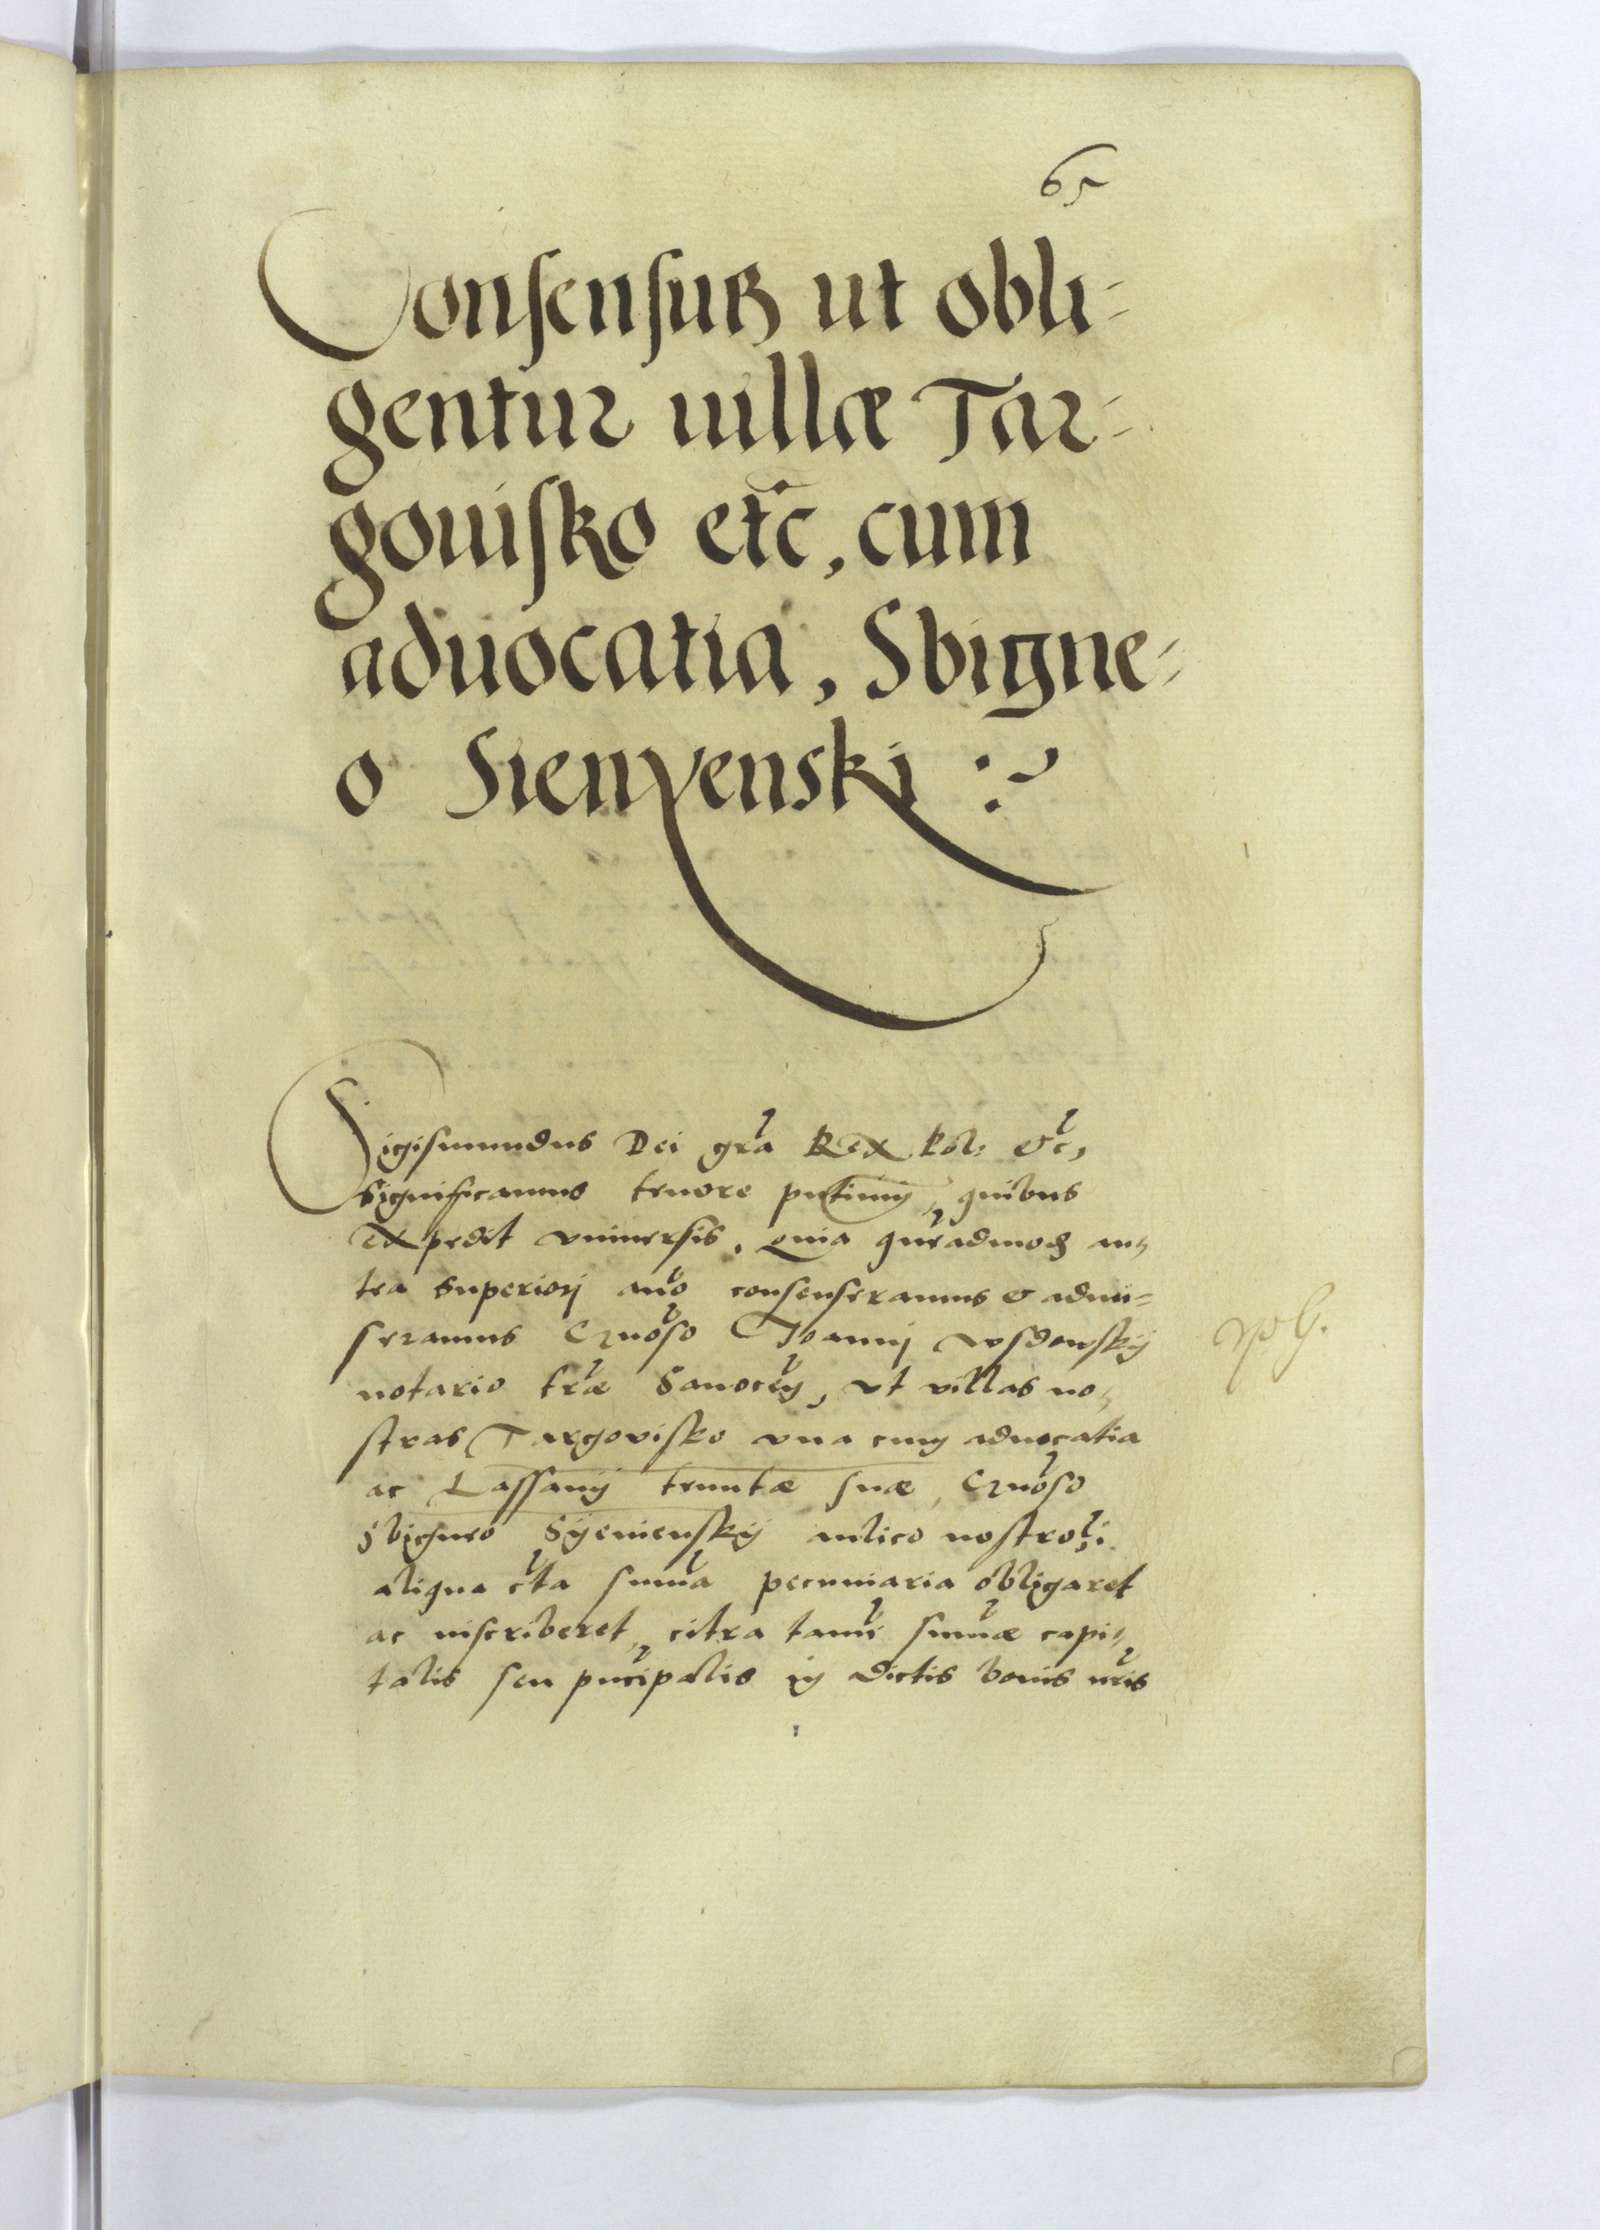 65
Consensus ut obli-
gentur uillæ Tar-
gouisko etc, cum
aduocatia, Sbigne-
o Sienyenskj
Sigismundus Dei gra Rex Pol: etc,
significamus tenore pntium, quibus
expedit vniuersis, Quia queadmod an-
tea superiorj anno consenseramus & admi-
seramus Gnoso Joannj
notario træ Sanocen, vt villas no-
stras Targovisko vna cum aduocatia
ac Lassany tenutæ suæ, Gnoso
Sbigneo Syenienskij aulico nostro, i
aliqua cta summa pecuniaria obligaret
ac inscriberet, citra tamen summæ capi-
talis seu pncipalis in dictis bonis nris